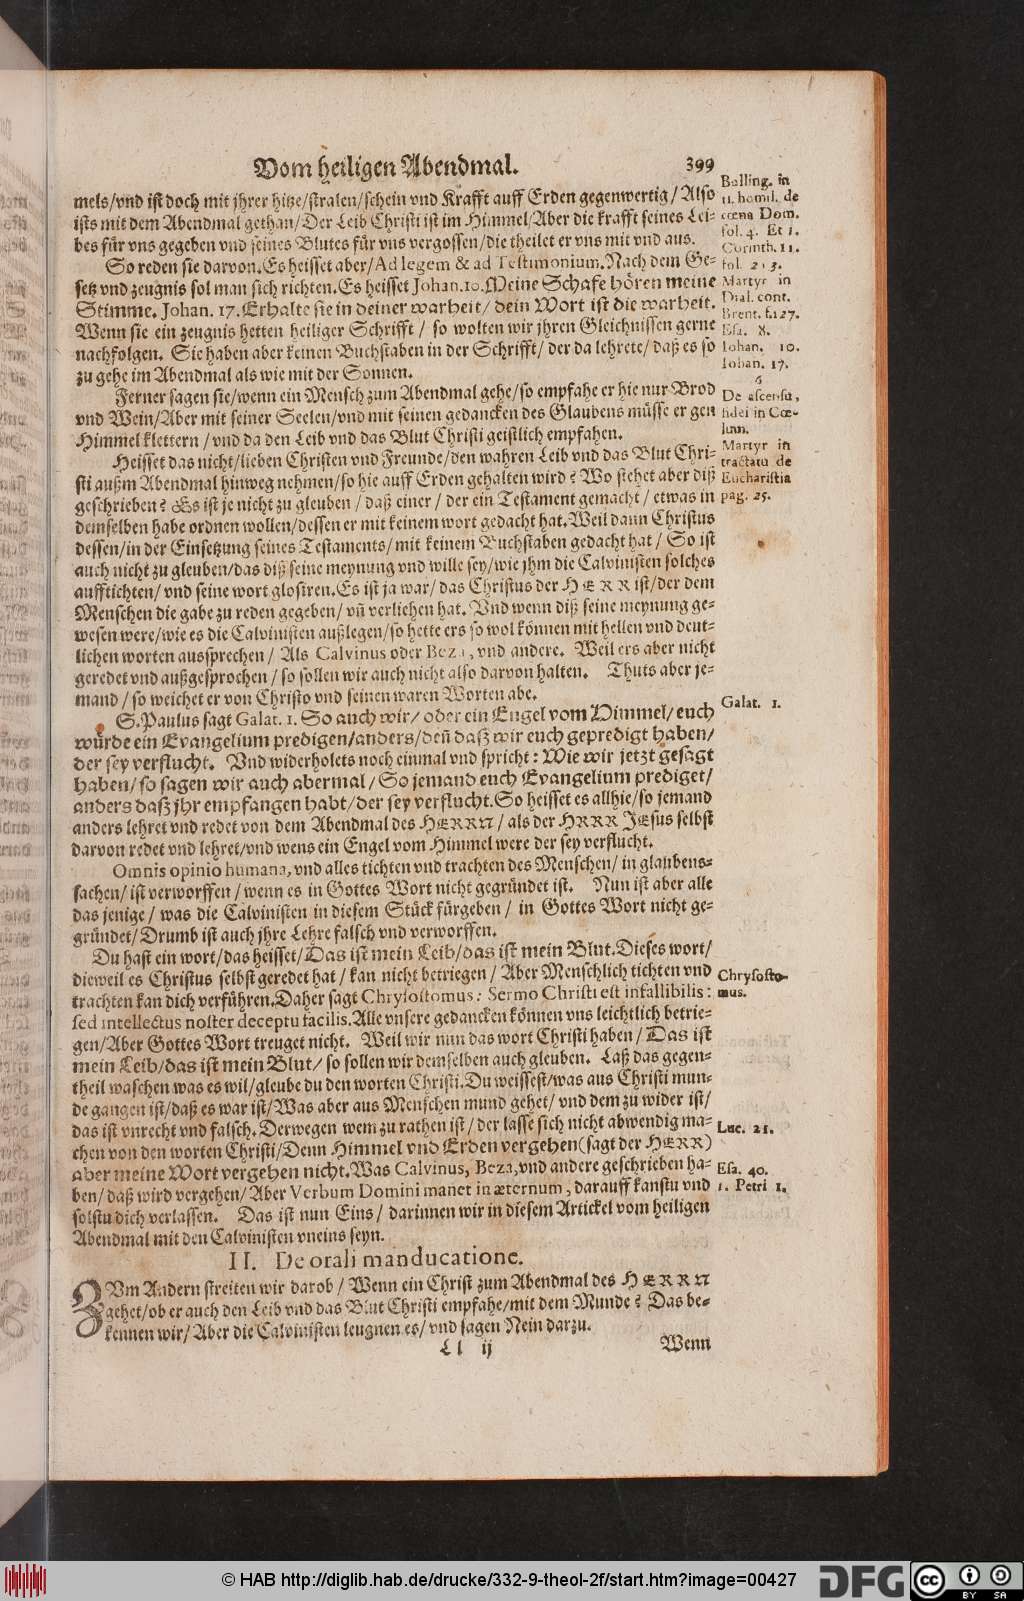 Vom heiligen Abendmal. 399
mels/vnd ist doch mit jhrer hitze/stralen/schein vnd Krafft auff Erden gegenwertig/Also
ists mit dem Abendmal gethan/Der Leib Christi ist im Himmel/Aber die krafft seines Lei-
bes für vns gegeben vnd seines Blutes für vns vergossen/die theilet er vns mit vnd aus.
So reden sie darvon. Es heisset aber/Ad legem & ad Testimonium. Nach dem Ge-
setz vnd zeugnis sol man sich richten. Es heisset Johan. 10. Meine Schafe hören meine
Stimme. Johan. 17. Erhalte sie in deiner warheit/dein Wort ist die warheit.
Wenn sie ein zeugnis hetten heiliger Schrifft/so wolten wir jhren Gleichnissen gerne
nachfolgen. Sie haben aber keinen Buchstaben in der Schrifft/der da lehrete/daß es so
zu gehe im Abendmal als wie mit der Sonnen.
Ferner sagen sie/wenn ein Mensch zum Abendmal gehe/so empfahe er hie nur Brod
vnd Wein/Aber mit seiner Seelen/vnd mit seinen gedancken des Glaubens müsse er gen
Himmel klettern/vnd da den Leib vnd das Blut Christi geistlich empfahen.
Heisset das nicht/lieben Christen vnd Freunde/den wahren Leib vnd das Blut Chri-
sti außm Abendmal hinweg nehmen/so hie auff Erden gehalten wird? Wo stehet aber diß
geschrieben? Es ist je nicht zu gleuben/daß einer/der ein Testament gemacht/etwas in
demselben habe ordnen wollen/dessen er mit keinem wort gedacht hat. Weil dann Christus
dessen/in der Einsetzung seines Testaments/mit keinem Buchstaben gedacht hat/So ist
auch nicht zu gleuben/das diß seine meynung vnd wille sey/wie jhm die Calvinisten solches
aufftichten/vnd seine wort glosiren. Es ist ja war/das Christus der HERR ist/der dem
Menschen die gabe zu reden gegeben/vñ verliehen hat. Vnd wenn diß seine meynung ge-
wesen were/wie es die Calvinisten außlegen/so hette ers so wol können mit hellen vnd deut-
lichen worten aussprechen/Als Calvinus oder Beza, vnd andere. Weil ers aber nicht
geredet vnd außgesprochen/so sollen wir auch nicht also darvon halten. Thuts aber je-
mand/so weichet er von Christo vnd seinen waren Worten abe.
S. Paulus sagt Galat. 1. So auch wir/oder ein Engel vom Himmel/euch
würde ein Evangelium predigen/anders/deñ daß wir euch gepredigt haben/
der sey verflucht. Vnd widerholets noch einmal vnd spricht: Wie wir jetzt gesagt
haben/so sagen wir auch abermal/So jemand euch Evangelium prediget/
anders daß jhr empfangen habt/der sey verflucht. So heisset es allhie/so jemand
anders lehret vnd redet von dem Abendmal des HERRN/als der HRRR JEsus selbst
darvon redet vnd lehret/vnd wens ein Engel vom Himmel were der sey verflucht.
Omnis opinio humana, vnd alles tichten vnd trachten des Menschen/in glaubens-
sachen/ist verworffen/wenn es in Gottes Wort nicht gegründet ist. Nun ist aber alle
das jenige/was die Calvinisten in diesem Stück fürgeben/in Gottes Wort nicht ge-
gründet/Drumb ist auch jhre Lehre falsch vnd verworffen.
Du hast ein wort/das heisset/Das ist mein Leib/das ist mein Blut. Dieses wort/
dieweil es Christus selbst geredet hat/kan nicht betriegen/Aber Menschlich tichten vnd
trachten kan dich verführen. Daher sagt Chrysostomus: Sermo Christi est infallibilis:
sed intellectus noster deceptu facilis. Alle vnsere gedancken können vns leichtlich betrie-
gen/Aber Gottes Wort treuget nicht. Weil wir nun das wort Christi haben/Das ist
mein Leib/das ist mein Blut/so sollen wir demselben auch gleuben. Laß das gegen-
theil waschen was es wil/gleube du den worten Christi. Du weissest/was aus Christi mun-
de gangen ist/daß es war ist/Was aber aus Menschen mund gehet/vnd dem zu wider ist/
das ist vnrecht vnd falsch. Derwegen wem zu rathen ist/der lasse sich nicht abwendig ma-
chen von den worten Christi/Denn Himmel vnd Erden vergehen (sagt der HERR)
aber meine Wort vergehen nicht. Was Calvinus, Beza, vnd andere geschrieben ha-
ben/daß wird vergehen/Aber Verbum Domini manet in æternum, darauff kanstu vnd
solstu dich verlassen. Das ist nun Eins/darinnen wir in diesem Artickel vom heiligen
Abendmal mit den Calvinisten vneins seyn.
II. De orali manducatione.
ZVm Andern streiten wir darob/Wenn ein Christ zum Abendmal des HERRN
gehet/ob er auch den Leib vnd das Blut Christi empfahe/mit dem Munde? Das be-
kennen wir/Aber die Calvinisten leugnen es/vnd sagen Nein darzu.
Ll ij Wenn
Bulling. in
11. homil. de
cœna Dom.
fol. 4. Et 1.
Corinth. 11.
fol. 213.
Martyr in
Dial. cont.
Brent. f. 127.
Esa. 8.
Iohan. 10.
Iohan. 17.
De ascensu,
fidei in Cœ-
lum.
Martyr in
tractatu de
Eucharistia
pag. 25.
Galat. 1.
Chrysosto-
mus.
Luc. 21.
Esa. 40.
1. Petri 1.
© HAB http://diglib.hab.de/drucke/332-9-theol-2f/start.htm?image=00427
DFG
cc BY SA